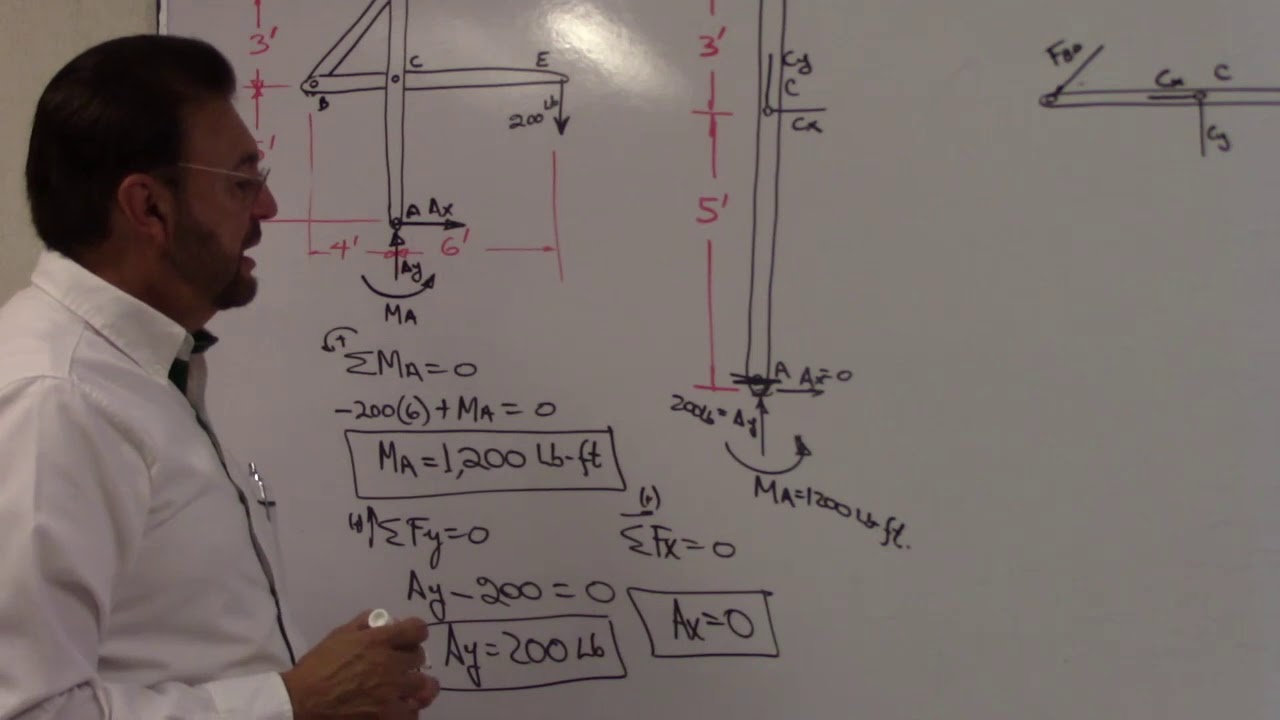 3'
C
E
B
200 Lb
A Ax
4'
6'
Ay
MA
+
ΣMA = 0
-200(6) + MA = 0
MA = 1,200 Lb-ft
(+)↑ΣFy = 0
Ay - 200 = 0
Ay = 200 Lb
(+)
ΣFx = 0
Ax = 0
3'
Cy
C
Cx
5'
A Ax = 0
200Lb = Ay
MA = 1200 Lb-ft.
Cx
C
Cy